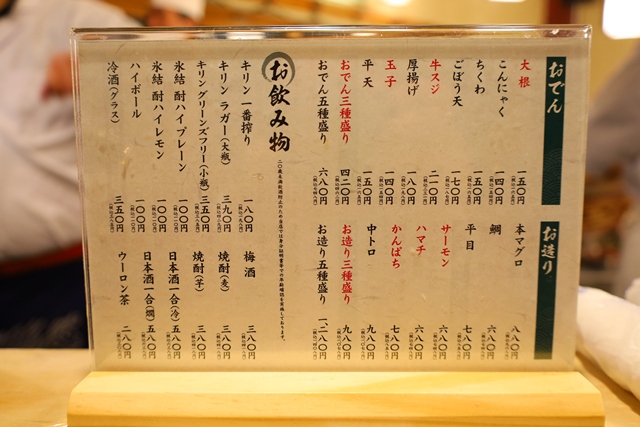 おでん
大根 一五〇円
こんにゃく 一四〇円
ちくわ 一五〇円
ごぼう天 一七〇円
牛スジ 二一〇円
厚揚げ 一八〇円
玉子 一四〇円
平天 一五〇円
おでん三種盛り 四二〇円
おでん五種盛り 六八〇円
お造り
本マグロ 八八〇円
鯛 六八〇円
平目 七八〇円
サーモン 六八〇円
ハマチ 六八〇円
かんぱち 七八〇円
中トロ 九八〇円
お造り三種盛り 九八〇円
お造り五種盛り 一、二八〇円
お飲み物
キリン 一番搾り 一八〇円
キリン ラガー(大瓶) 三九〇円
キリングリーンズフリー(小瓶) 三五〇円
氷結 酎ハイプレーン 一〇〇円
氷結 酎ハイレモン 一〇〇円
ハイボール 一〇〇円
冷酒(グラス) 三五〇円
梅酒 三八〇円
焼酎(麦) 三八〇円
焼酎(芋) 三八〇円
日本酒一合(冷) 五八〇円
日本酒一合(燗) 五八〇円
ウーロン茶 二八〇円